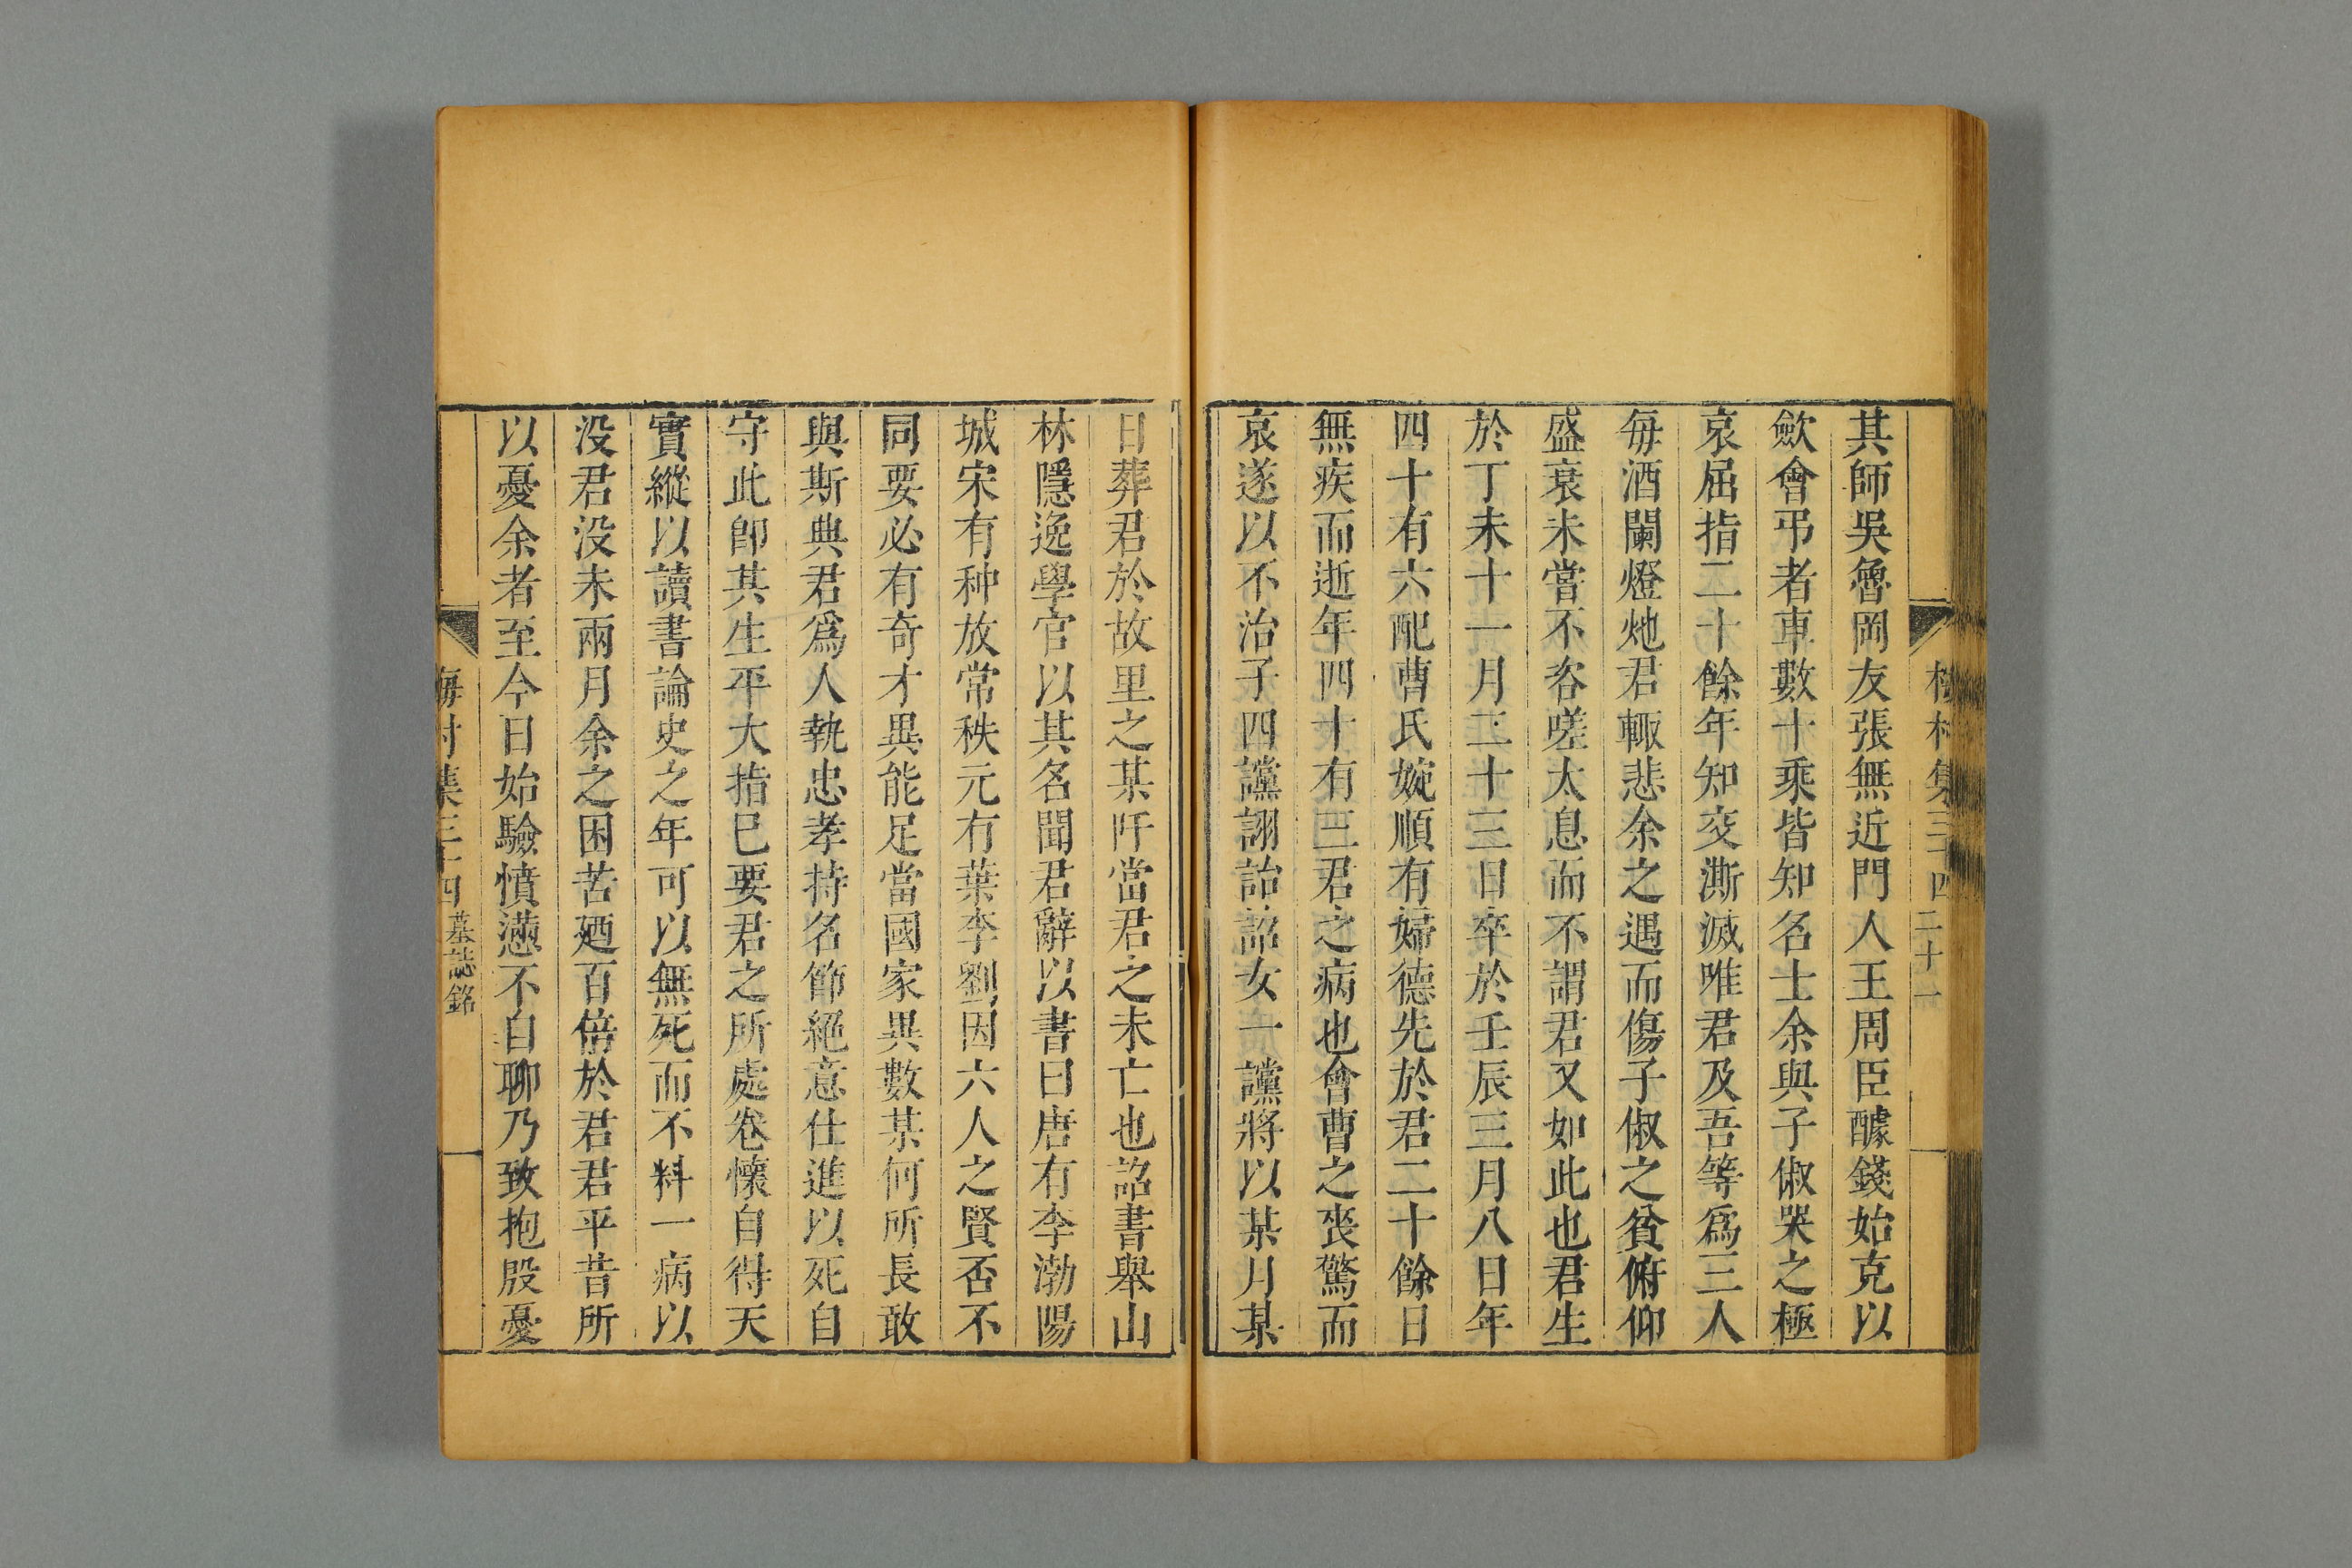 梅村集三十四 二十一
其師吳魯岡友張無近門人王周臣醵錢始克以
歛會弔者車數十乘皆知名士余與子俶哭之極
哀屈指二十餘年知交澌滅唯君及吾等爲三人
每酒闌燈灺君輒悲余之遇而傷子俶之貧俯仰
盛衰未嘗不咨嗟太息而不謂君又如此也君生
於丁未十一月二十三日卒於壬辰三月八日年
四十有六配曹氏婉順有婦德先於君二十餘日
無疾而逝年四十有三君之病也會曹之喪驚而
哀遂以不治子四讜詡詒詔女一讜將以某月某
日葬君於故里之某阡當君之未亡也詔書舉山
林隱逸學官以其名聞君辭以書曰唐有李渤陽
城宋有种放常秩元有葉李劉因六人之賢否不
同要必有奇才異能足當國家異數某何所長敢
與斯典君爲人執忠孝持名節絕意仕進以死自
守此卽其生平大指已要君之所處卷懷自得天
實縱以讀書論史之年可以無死而不料一病以
没君没未兩月余之困苦廼百倍於君君平昔所
以憂余者至今日始驗憤懣不自聊乃致抱殷憂
梅村集三十四 墓誌銘